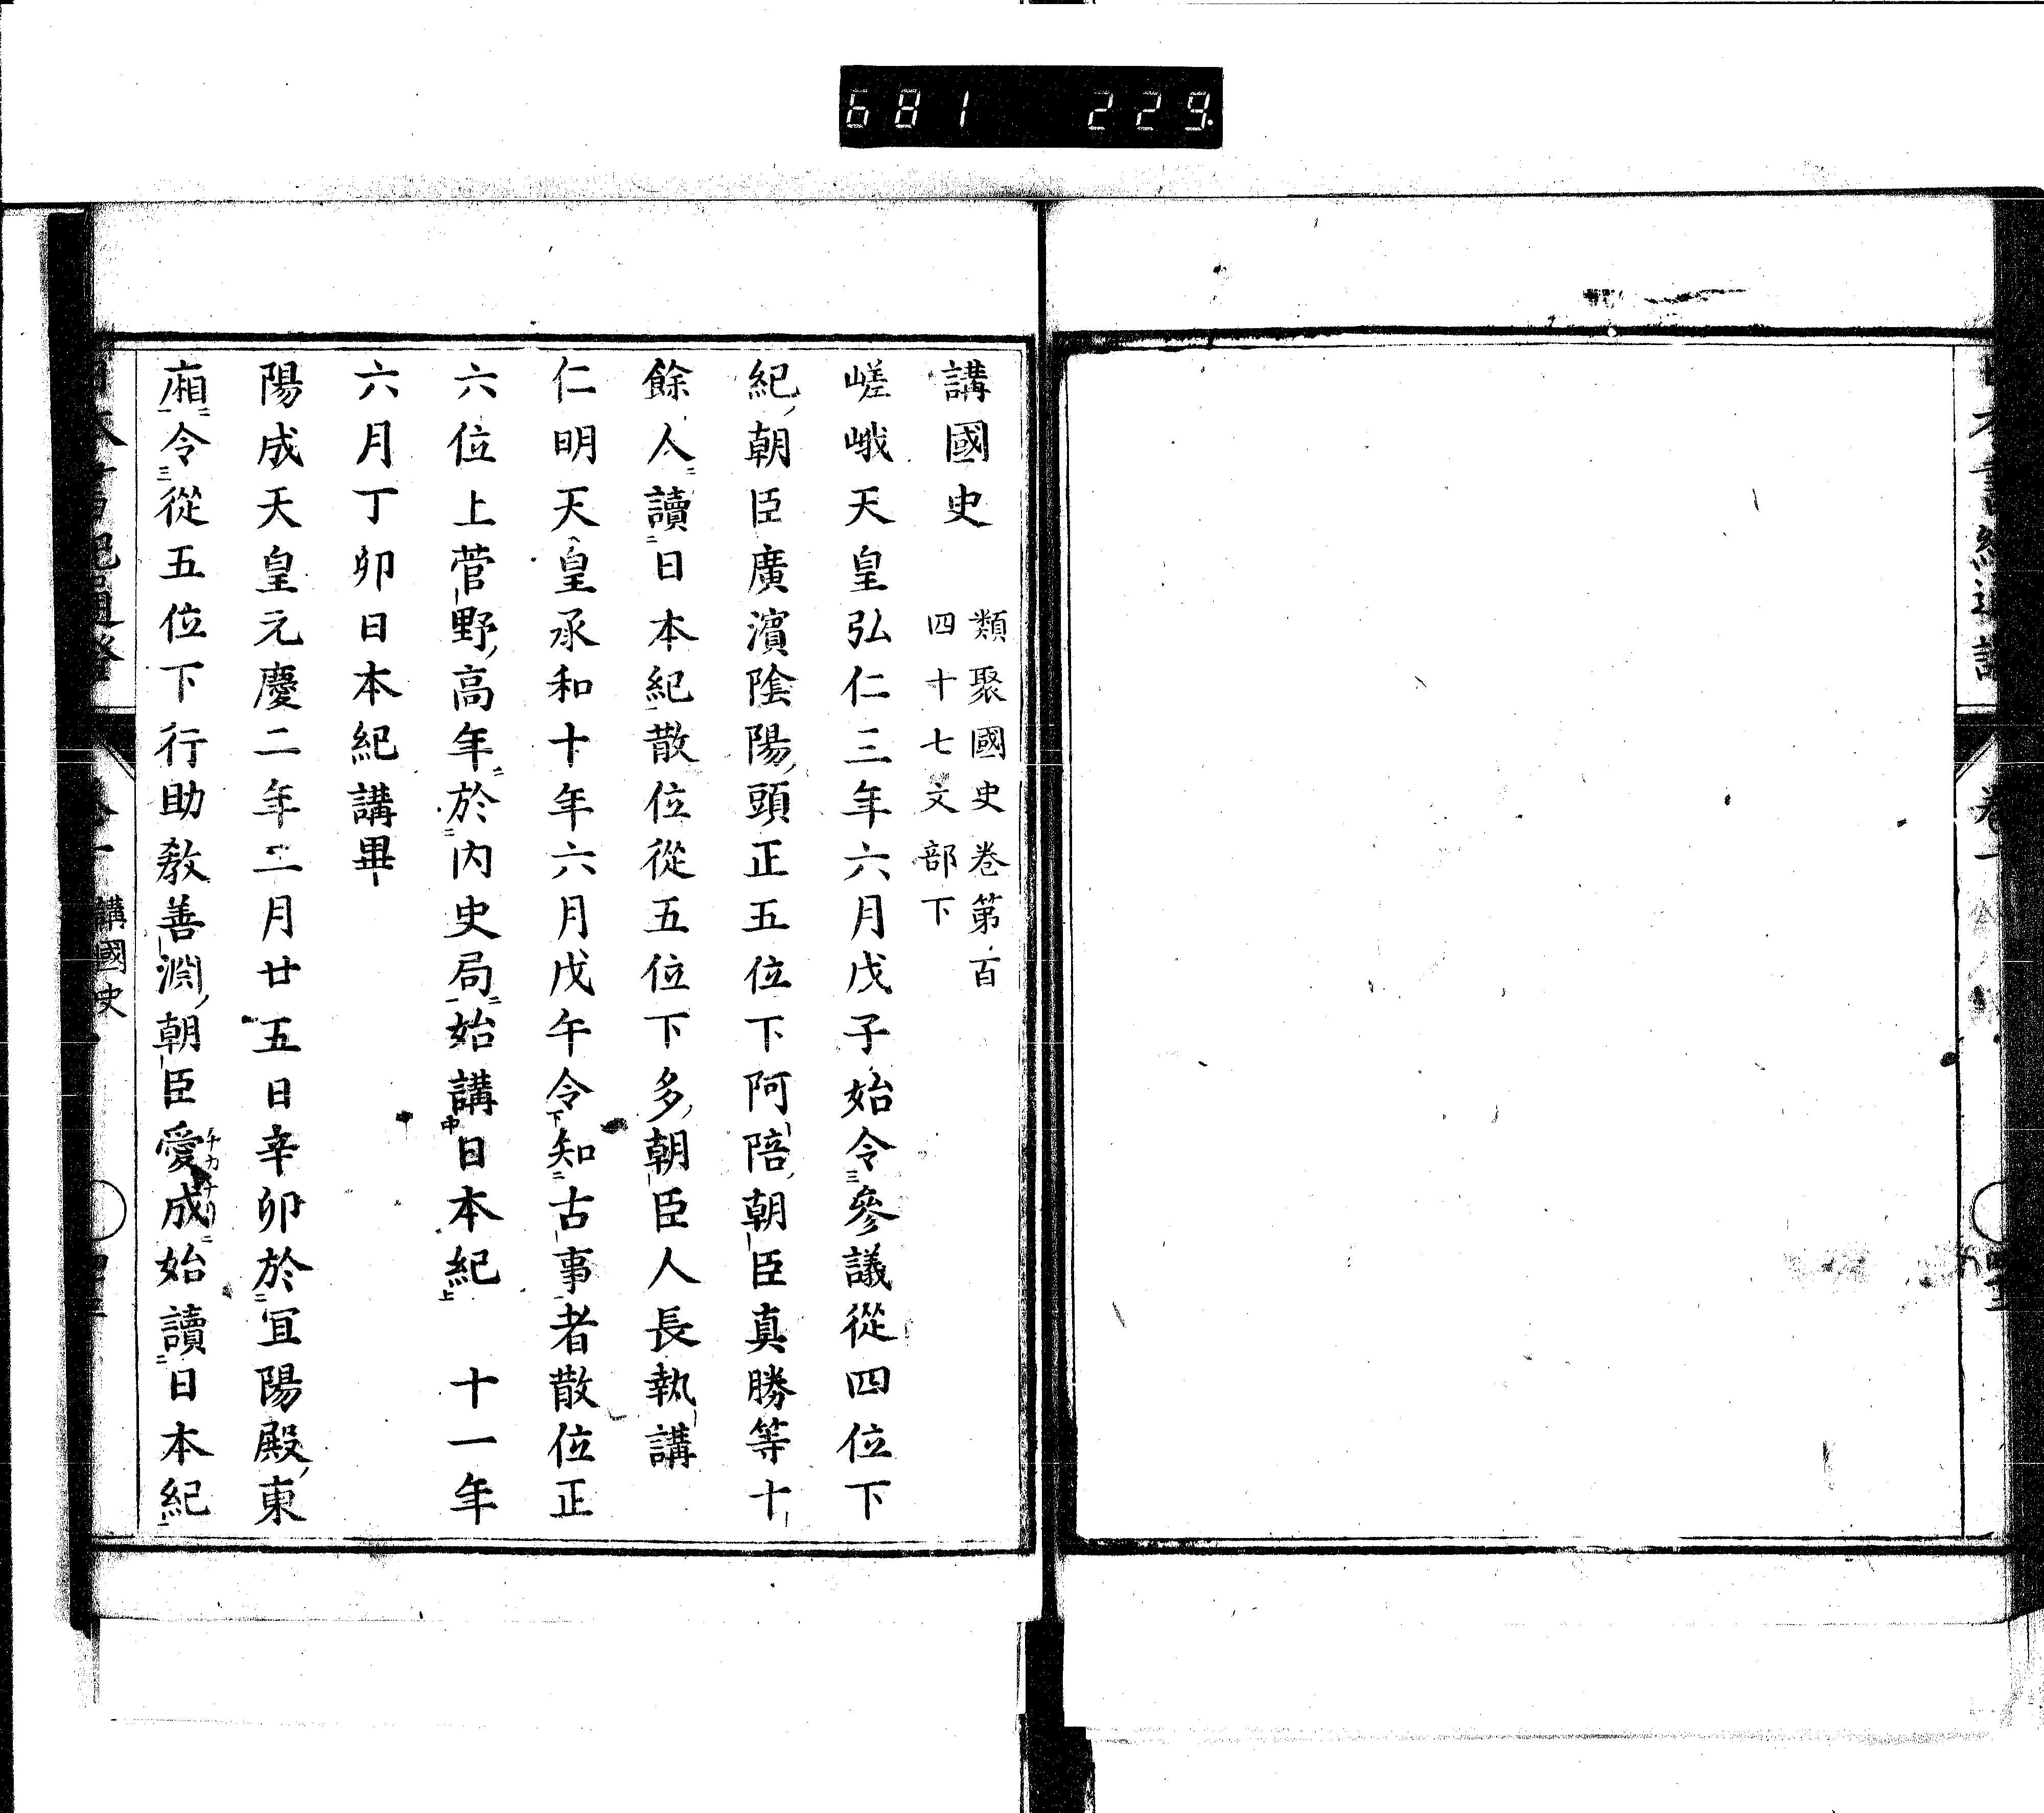 681 229
講國史 類聚國史卷第百
四十七文部下
嵯峨天皇弘仁三年六月戊子始令參議從四位下
紀朝臣廣濱陰陽頭正五位下阿陪朝臣真勝等十
餘人讀日本紀散位從五位下多朝臣人長執講
仁明天皇承和十年六月戊午令知古事者散位正
六位上菅野高年於内史局始講日本紀 十一年
六月丁卯日本紀講畢
陽成天皇元慶二年二月廿五日辛卯於宜陽殿東
廂令從五位下行助教善淵朝臣愛成始讀日本紀
講國史